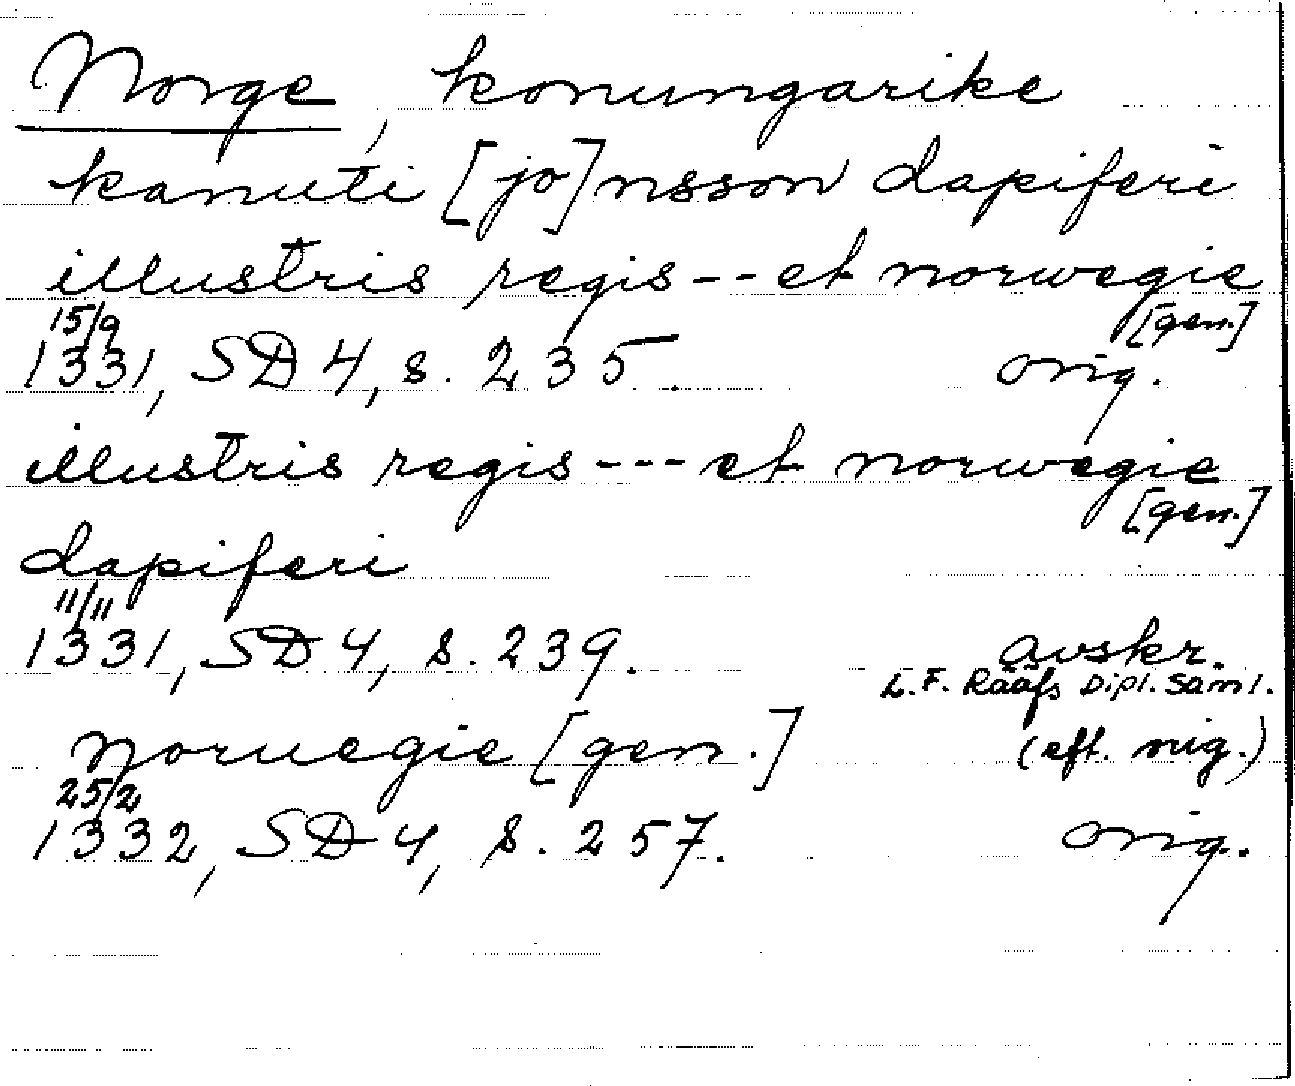 Norge, konungarike
kanuti [jo]nsson dapiferi
illustris regis -- et norwegie
[gen.]
15/9
1331, SD 4, s. 235. orig.
illustris regis --- et norwegie
[gen.]
dapiferi
11/11
1331, SD 4, s. 239. avskr.
L. F. Rääfs Dipl. Saml.
noruegie [gen.] (eft. orig.)
25/2
1332, SD 4, s. 257. orig.